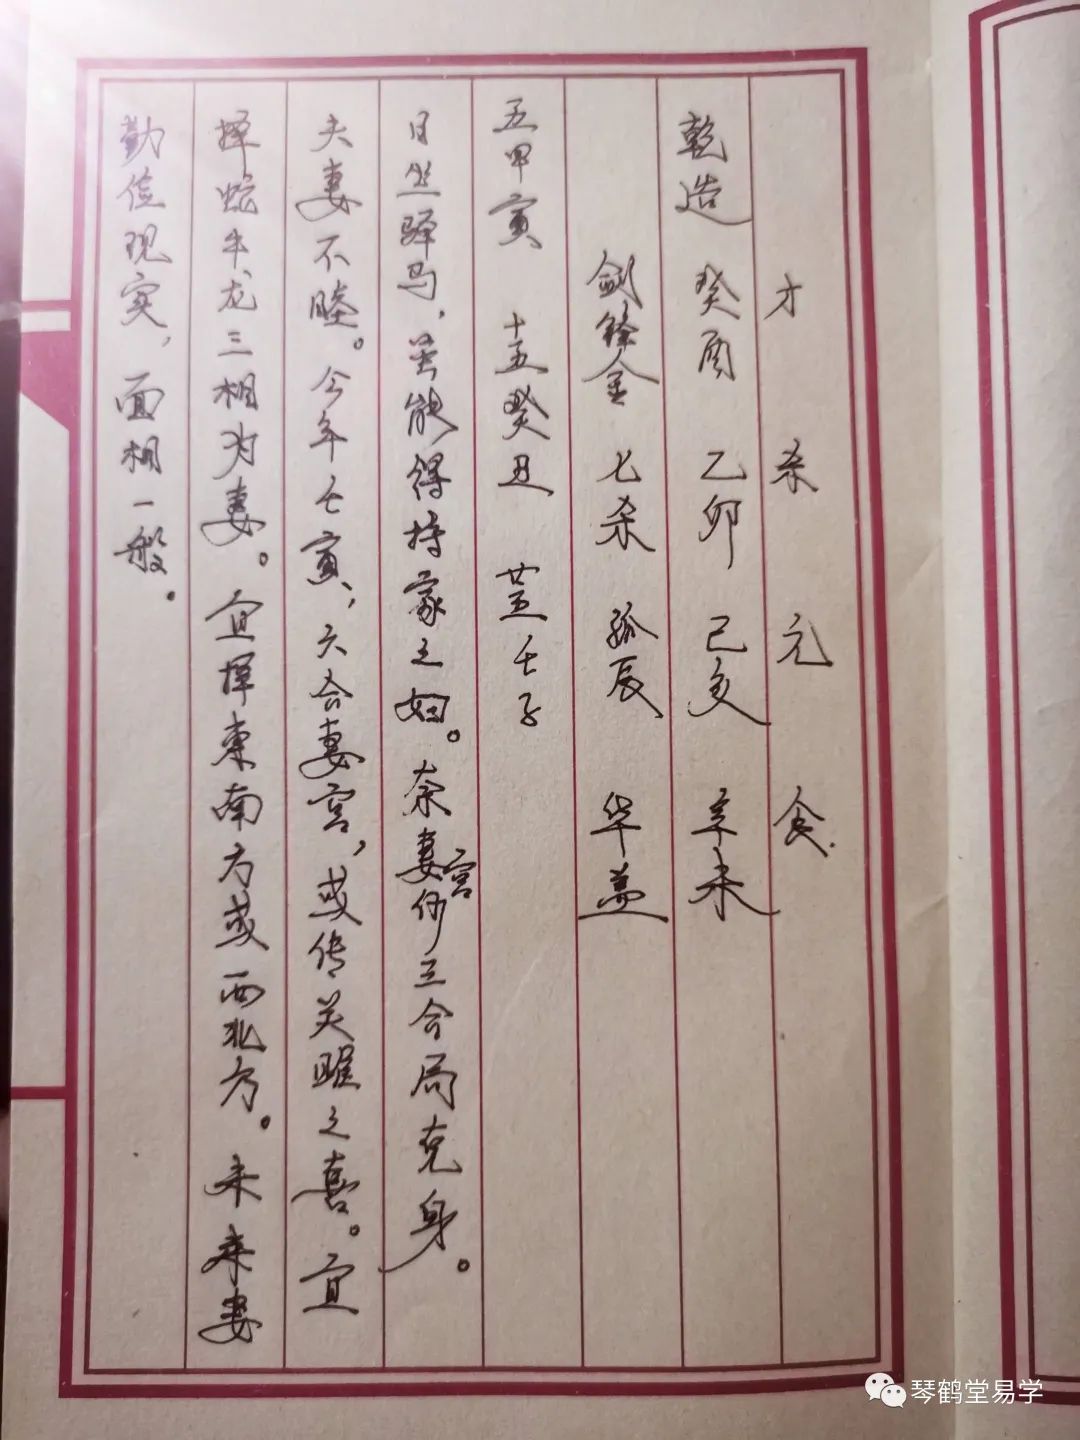 才 杀 元 食
乾造 癸酉 乙卯 己亥 辛未
剑锋金 七杀 孤辰 华盖
五甲寅 十五癸丑 廿五壬子
日坐驿马，虽能得持家之妇。奈妻宫作三合局克身。
夫妻不睦。今年壬寅，六合妻宫，或传关雎之喜。宜
择蛇牛龙三相为妻。宜择东南方或西北方。未来妻
勤俭现实，面相一般。
琴鹤堂易学